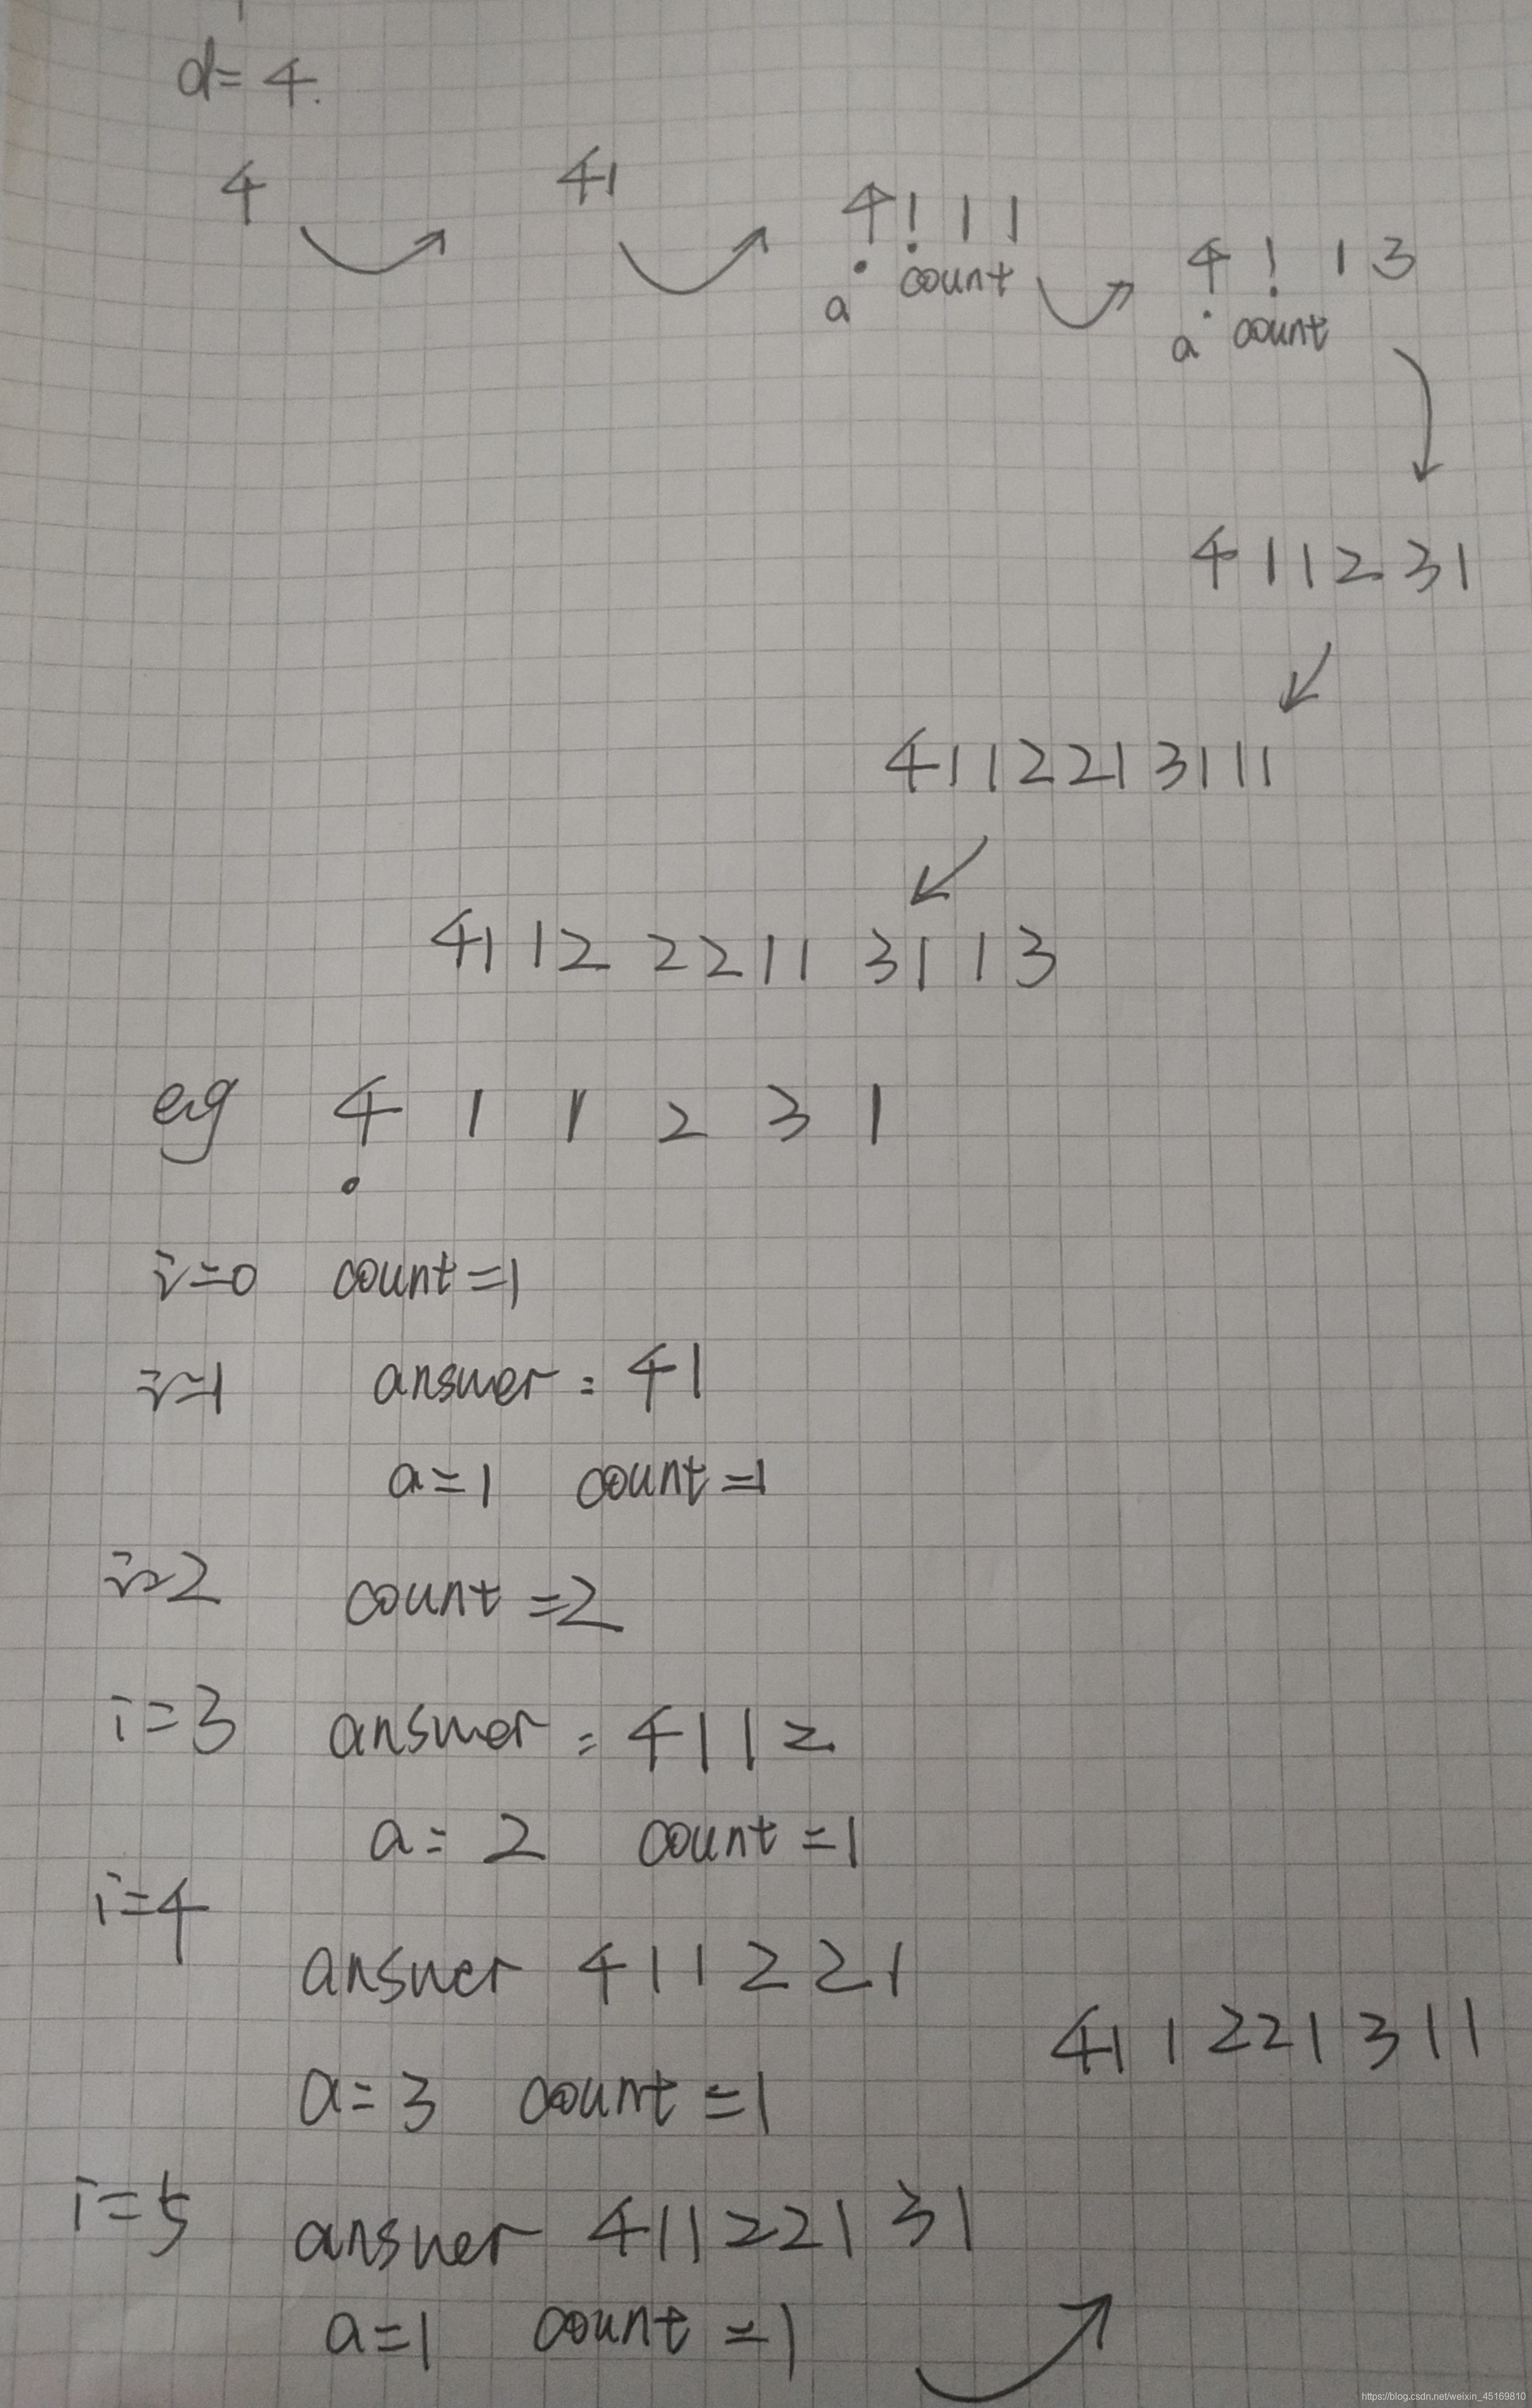 d=4.
4 41 4111 4113
a count a count
411231
4112213111
411222113113
eg 4 1 1 2 3 1
i=0 count=1
i=1 answer = 41
a=1 count=1
i=2 count=2
i=3 answer = 4112
a=2 count=1
i=4
answer 411221
411221311
a=3 count=1
i=5 answer 41122131
a=1 count=1
https://blog.csdn.net/weixin_45169810